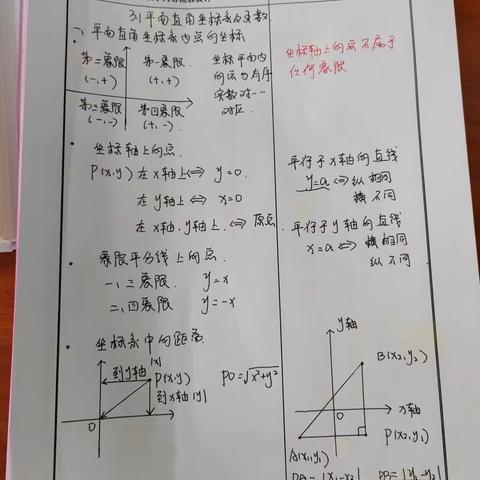 3.1平面直角坐标系及函数
一、平面直角坐标系内点的坐标
第二象限
(-,+)
第一象限
(+,+)
第三象限
(-,-)
第四象限
(+,-)
坐标平面内
的点与有序
实数对一一
对应.
坐标轴上的点不属于
任何象限.
坐标轴上的点.
P(x,y) 在x轴上⇔ y=0.
在y轴上⇔ x=0
在x轴,y轴上.⇔ 原点
平行于x轴的直线
y=a⇔ 纵相同
横不同
平行于y轴的直线
x=a⇔ 横相同
纵不同
象限平分线上的点.
一、三象限. y=x
二、四象限 y=-x
坐标系中的距离
到y轴|x|
P(x,y)
到x轴|y|
O
PO=√x²+y²
y轴
B(x₂,y₂)
O
x轴
P(x₂,y₁)
A(x₁,y₁)
PA=|x₁-x₂| PB=|y₁-y₂|